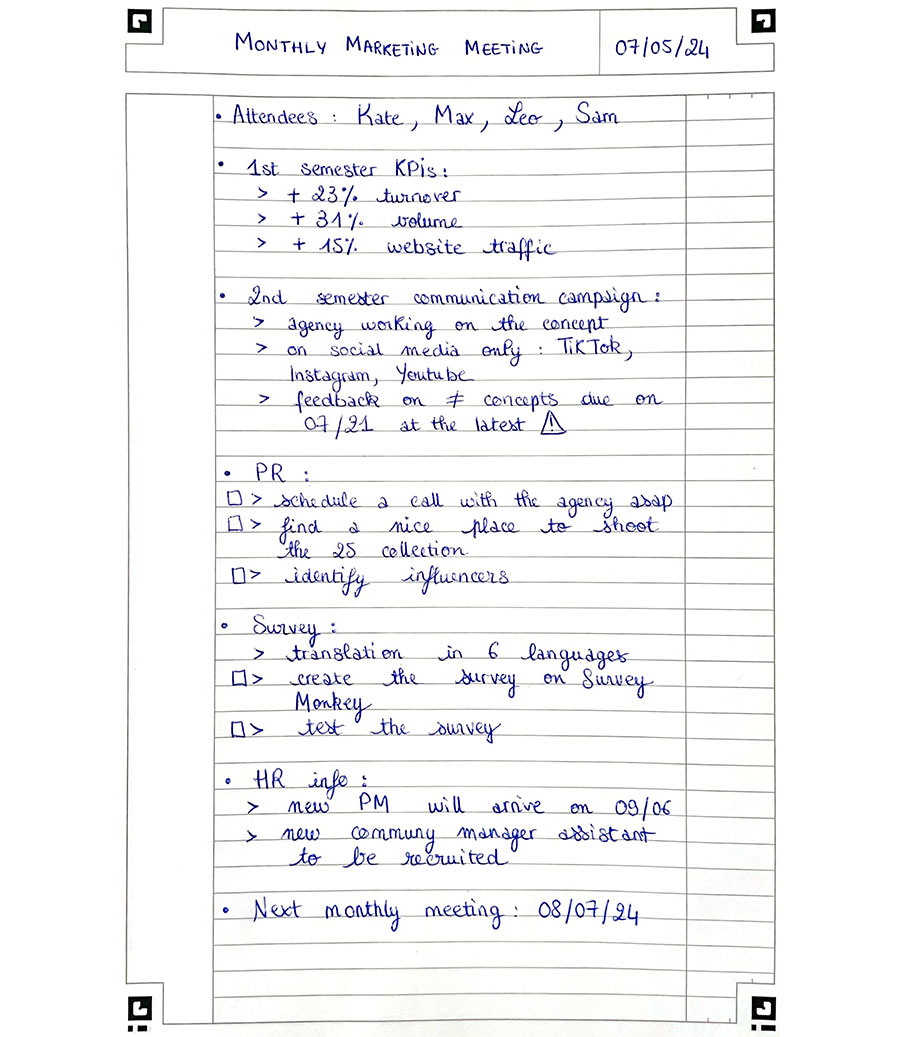 MONTHLY MARKETING MEETING 07/05/24
• Attendees : Kate, Max, Leo, Sam
• 1st semester KPis :
> + 23% turnover
> + 31% volume
> + 15% website traffic
• 2nd semester communication campaign :
> agency working on the concept
> on social media only : TikTok,
Instagram, Youtube
> feedback on ≠ concepts due on
07/21 at the latest ⚠
• PR :
☐ > schedule a call with the agency asap
☐ > find a nice place to shoot
the 25 collection
☐ > identify influencers
• Survey :
> translation in 6 languages
☐ > create the survey on Survey
Monkey
☐ > test the survey
• HR info :
> new PM will arrive on 09/06
> new communy manager assistant
to be recruited
• Next monthly meeting : 08/07/24